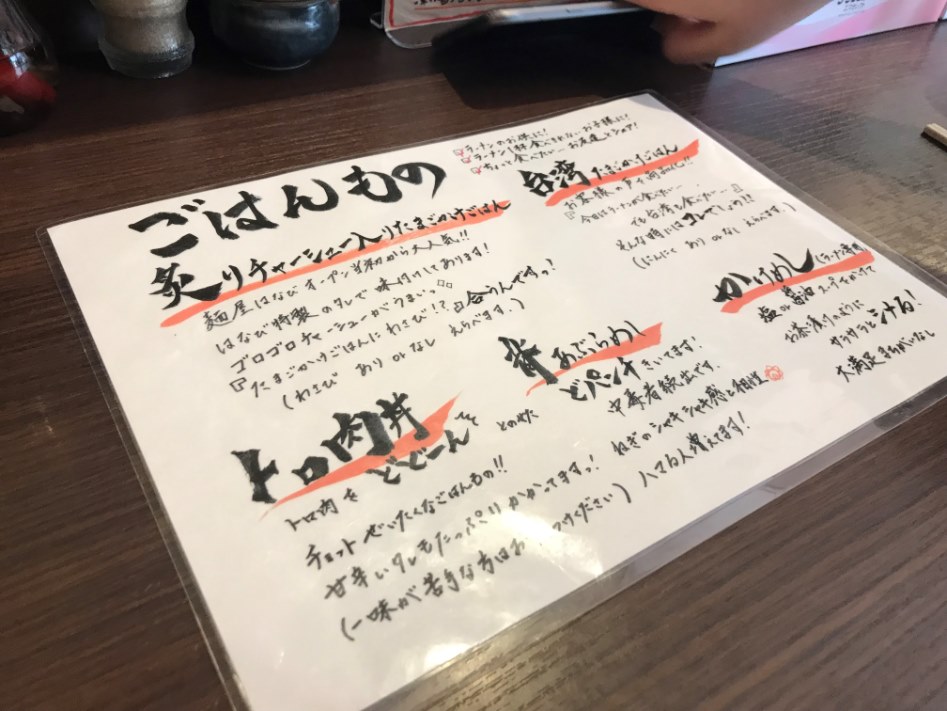 ごはんもの
炙りチャーシュー入りたまごかけごはん
麺屋はなびオープン当初から大人気!!
はなび特製のタレで味付けしてあります!
ゴロゴロチャーシューがうまいっ
たまごかけごはんにわさび!? 合うんですっ!
(わさび あり or なし えらべます。)
ラーメンのお供に!
ラーメン1杯食べきれない…お子様に!
ちょっと食べたい…お友達とシェア!
台湾たまごかけごはん
お客様の声で商品化!!
今日はラーメンが食べたい…
でも台湾も食べたい…
そんな時にはコレでしょ!!!
(にんにく あり or なし えらべます。)
かけめし
塩or醤油スープをかけて
お茶漬けのように
サラサラと
大満足まちがいなし
背あぶらめし
どパンチきいてます!
中毒者続出です。
ねぎのシャキシャキ感と相性
ハマる人増えてます!
トロ肉丼
トロ肉を どどーんと とのせた
チョットぜいたくなごはんもの!!
甘辛いタレもたっぷりかかってますっ!
(一味が苦手な方はお つけください)